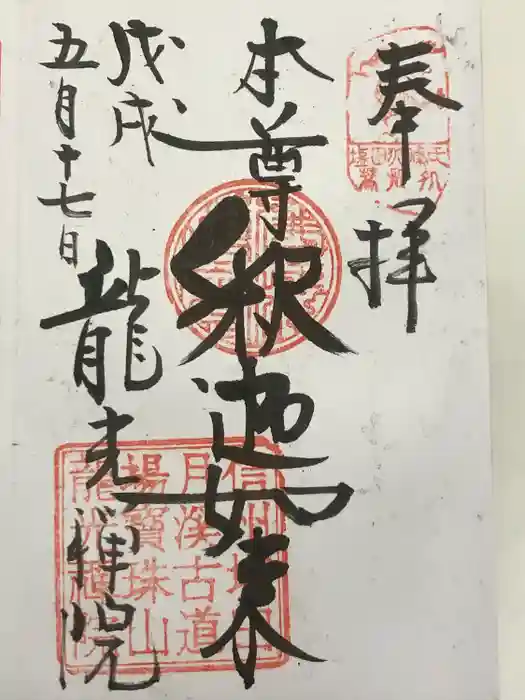 奉拝
本尊釈迦如来
戊戌
五月十七日
龍光禅院
信州塩田
月溪古道
場寶珠山
龍光禅院